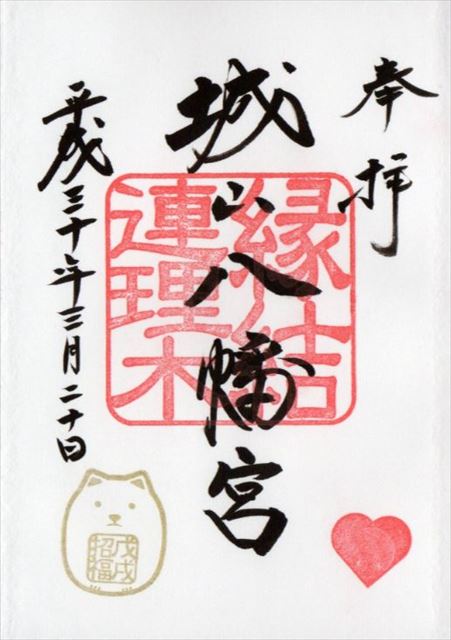 奉拝
城山八幡宮
縁結
連理木
平成三十年三月二十日
戊戌
招福